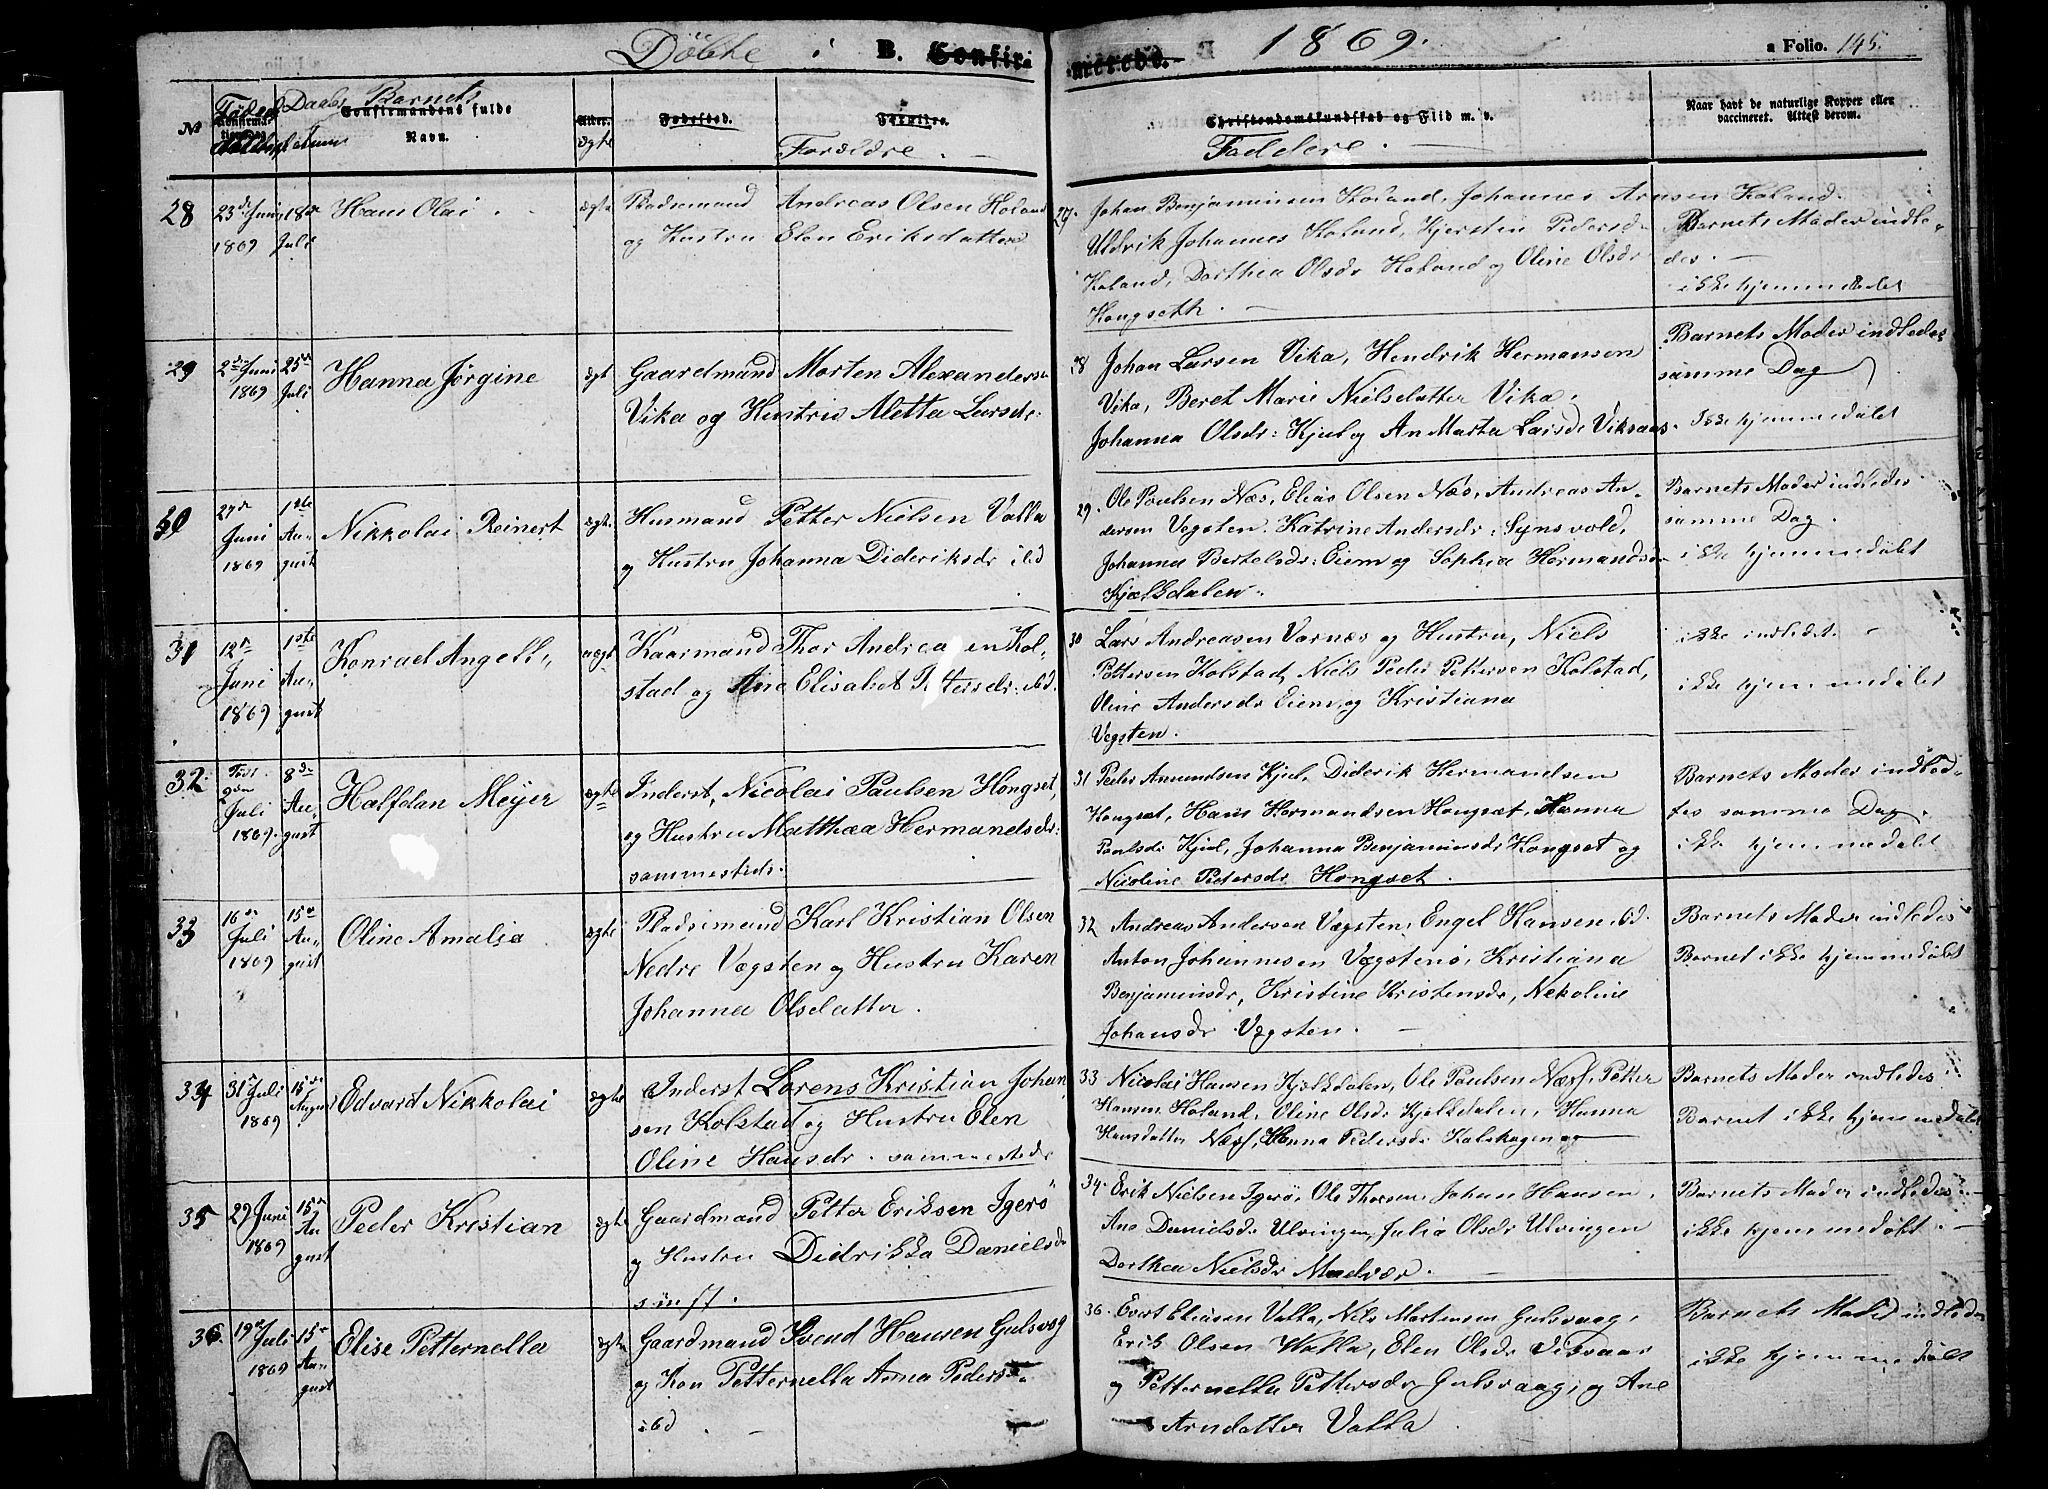 Döbte i B. Confirmerede. 1869. a Folio. 145.
No Fødsel Daabs datum Barnets
Confirmandens fulde
Navn.
Alter.
ægte
Fødested.
Familie.
Forældre.
Christendomskundskab og Flid m. v.
Faddere.
Naar havt de naturlige Kopper eller
vaccineret. Attest derom.
28 23de Juni 1869 18de Juli Hans Olai ægte
Pladsmand Andreas Olsen Holand
og Hustru Elen Eriksdatter
27. Johan Benjaminsen Holand, Johannes Arnsen Holand.
Uldrik Johannes Holand, Kjersten Pedersd
Holand, Dorthea Olsdr Holand og Oline Olsdr
Hongseth.
Barnets Moder indle-
des.
ikke hjemmedøbt
29 2den Juni 1869 25de Juli Hanna Jørgine ægt
Gaardmand Morten Alexandersn
Vika og Hustru Aletta Larsdr:
28 Johan Larsen Vika, Hendrik Hermansen
Vika, Beret Marie Nielsdatter Vika,
Johanna Olsdr: Kjul og An Marta Larsdr Viksaas.
Barnets Moder indledes
samme Dag
Ikke hjemmedøbt
30 27de Juni 1869 1ste August Nikkolai Reinert ægte
Husmand Petter Nielsen Valla
og Hustru Johanna Dideriksdr ibd
29. Ole Poulsen Næs, Elias Olsen Næs, Andreas An-
dersen Vegsten. Katrine Andersdr: Synsvold,
Johanna Bertelsdr: Eiem og Sophia Hermandsdr
Kjælkdalen.
Barnets Moder indledes
samme Dag.
ikke hjemmedøbt
31 12te Juni 1869 1ste August Konrad Angell, uægt
Kaarmand Thor Andreasen Kol-
stad og Ane Elisabet Pettersdr: ibd.
30 Lars Andreasen Varnæs og Hustru, Niels
Pettersen Kolstad, Niels Peder Pettersen Kolstad,
Oline Andersdr Eiem, og Kristiana
Vegsten.
ikke indledet.
ikke hjemmedøbt
32. Juli 1869. 8de August Halfdan Meyer ægte
Inderst, Nicolai Paulsen Hongset,
og Hustru Matthæa Hermandsdr:
sammesteds.
31 Peder Amundsen Kjul, Diderik Hermandsen
Hongset, Hans Hermandsen Hongset, Hanna
Paulsdr Kjul, Johanna Benjaminsdr Hongset og
Nicoline Pedersdr Hongset.
Barnets Moder indled-
tes samme Dag.
ikke hjemmedøbt
33 16de Juli 1869 15de August Oline Amalia ægte
Pladsmand Karl Kristian Olsen
Nedre Vægsten og Hustru Karen
Johanna Olsdatter.
32 Andreas Andersen Vægsten, Engel Hansen ibd.
Anton Johannesen Vægstenø, Kristiana
Benjaminsdr, Kristine Kristensdr, Nekoline
Johansdr Vegsten.
Barnets Moder indledes
Barnet ikke hjemmedøbt
34 31de Juli 1869 15de August Edvard Nikkolai ægte
Inderst Lorens Kristian Johan
sen Kolstad og Hustru Elen
Oline Hansdr. sammesteds
33 Nicolai Hansen Kjelkdalen, Ole Paulsen Næsf, Petter
Hansen Holand, Oline Olsdr Kjelkdalen, Hanna
Hansdatter Næsf, Hanna Pedersdr Kalskagen og
Barnets Moder indledes
Barnet ikke hjemmedøbt
35 29 Juni 1869 15de August Peder Kristian ægte
Gaardmand Petter Eriksen Igerö
og Hustru Didrikka Danielsdr
34. Erik Nielsen Igerø, Ole Thorsen, Johan Hansen,
Ane Danielsdr Ulvingen, Julia Olsdr Ulvingen
Dorthea Nielsdr Madvær.
Barnets Moder indledes
ikke hjemmedøbt.
36. 19de Juli 1869 15de August Elise Petternella ægte
Gaardmand Svend Hansen Gulsvog
og Kon Petternella Anna Pedersdr
ibd
36. Evert Eliasen Valla, Nils Mortensen Gulsvaag,
Erik Olsen Valla, Elen Olsdr Viksaas
og Petternella Pettersdr Gulsvaag, og Ane
Arndatter Valla
Barnets Moder indledes
ikke hjemmedøbt